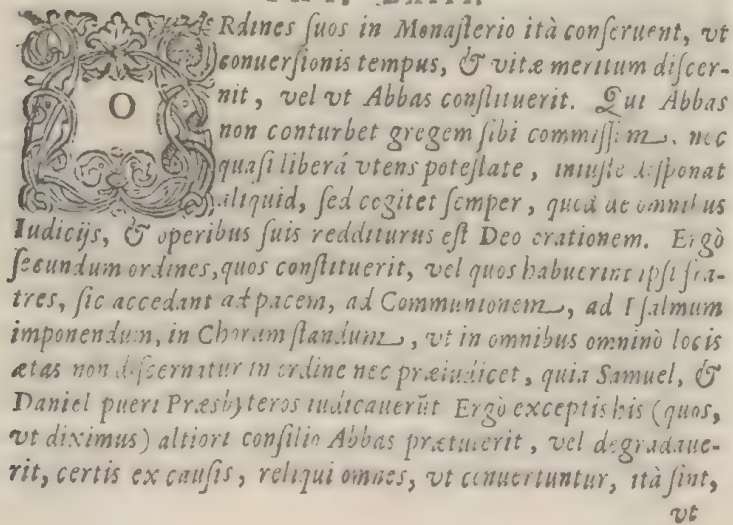 ORdines ſuos in Monaſterio ità conſeruent, vt
conuerſionis tempus, & vitæ meritum diſcer-
nit, vel vt Abbas conſtituerit. Qui Abbas
non conturbet gregem ſibi commiſſum, nec
quaſi liberá vtens poteſtate, iniuſte diſponat
aliquid, ſed cogitet ſemper, quod de omnibus
Iudicijs, & operibus ſuis redditurus eſt Deo rationem. Ergò
ſecundum ordines, quos conſtituerit, vel quos habuerint ipſi fra-
tres, ſic accedant ad pacem, ad Communionem, ad Pſalmum
imponendum, in Choram ſtandum, vt in omnibus omninò locis
ætas non diſcernitur in ordine nec præiudicet, quia Samuel, &
Daniel pueri Præsbyteros iudicauerũt Ergò exceptis his (quos,
vt diximus) altiori conſilio Abbas prætulerit, vel degradaue-
rit, certis ex cauſis, reliqui omnes, vt conuertuntur, ità ſint,
vt